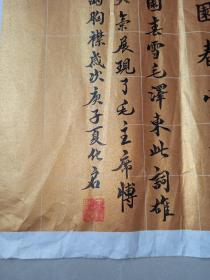 園春
園春雪毛澤東此詞雄
氣展現了毛主席博
的胸襟歲次庚子夏化名